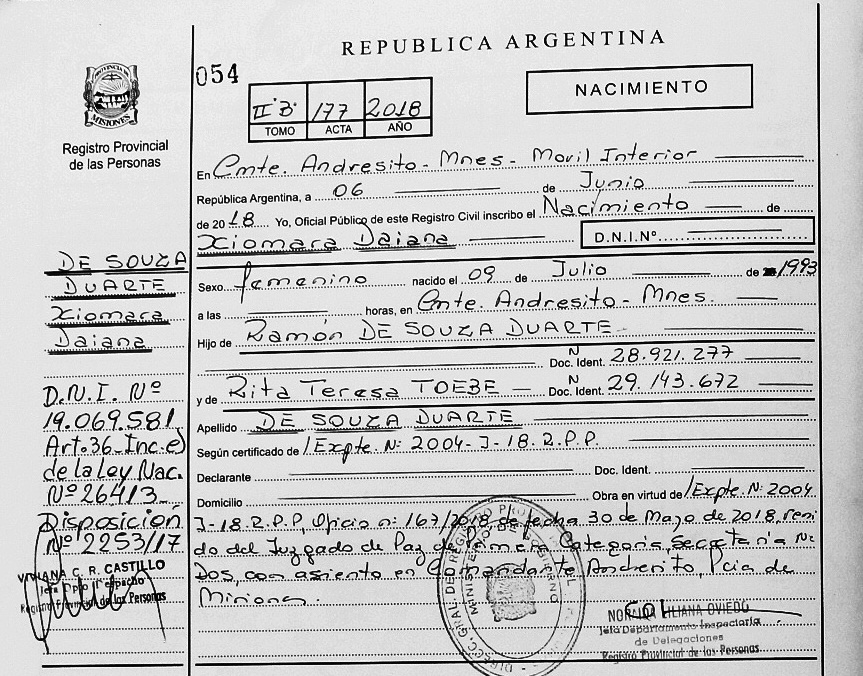 REPUBLICA ARGENTINA
PROVINCIA DE
MISIONES
Registro Provincial
de las Personas
054
IIºBº 177 2018
TOMO ACTA AÑO
NACIMIENTO
En Cmte. Andresito - Mnes - Movil Interior
República Argentina, a 06 de Junio
de 2018 Yo, Oficial Público de este Registro Civil inscribo el Nacimiento de
Xiomara Daiana D.N.I.Nº
Sexo femenino nacido el 09 de Julio de 1993
a las horas, en Cmte. Andresito - Mnes.
Hijo de Ramón DE SOUZA DUARTE
Doc. Ident. N 28.921.277
y de Rita Teresa TOEBE Doc. Ident. N 29.143.672
Apellido DE SOUZA DUARTE
Según certificado de Expte. Nº 2004-J-18.R.P.P.
Declarante Doc. Ident.
Domicilio Obra en virtud de Expte. Nº 2004
J-18.R.P.P, Oficio nº 167/2018, de fecha 30 de Mayo de 2018, remi
do del Juzgado de Paz de Primera Categoria, Secretaria Nº
Dos, con asiento en Comandante Andresito, Pcia de
Misiones.
DE SOUZA
DUARTE
Xiomara
Daiana
D.N.I. Nº
19.069.581
Art.36-Inc.e)
de la Ley Nac.
Nº 26413
Disposición
Nº 2253/17
VIVIANA C. R. CASTILLO
Jefa Dpto Despacho
Registro Provincial de las Personas
MINISTERIO DE GOBIERNO
LILIANA OVIEDO
Jefa Departamento Inspectoría
de Delegaciones
Registro Provincial de las Personas